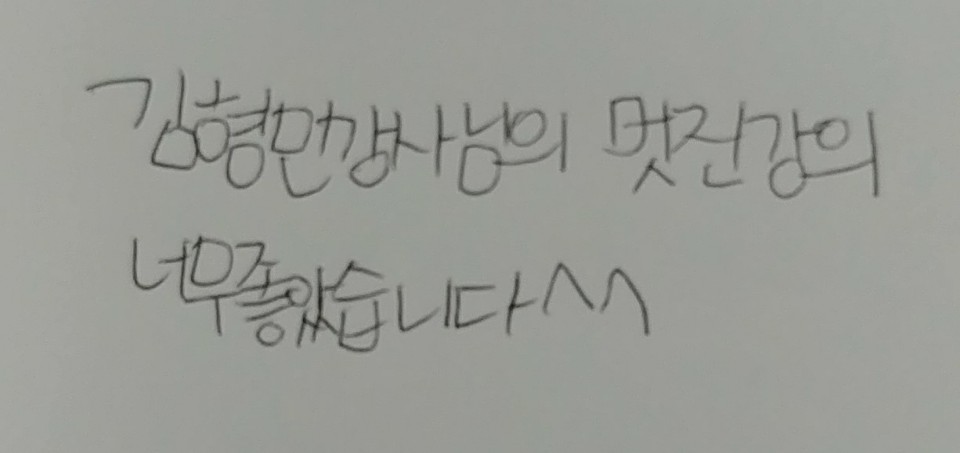 김형민강사님의 멋진강의
너무좋았습니다^^